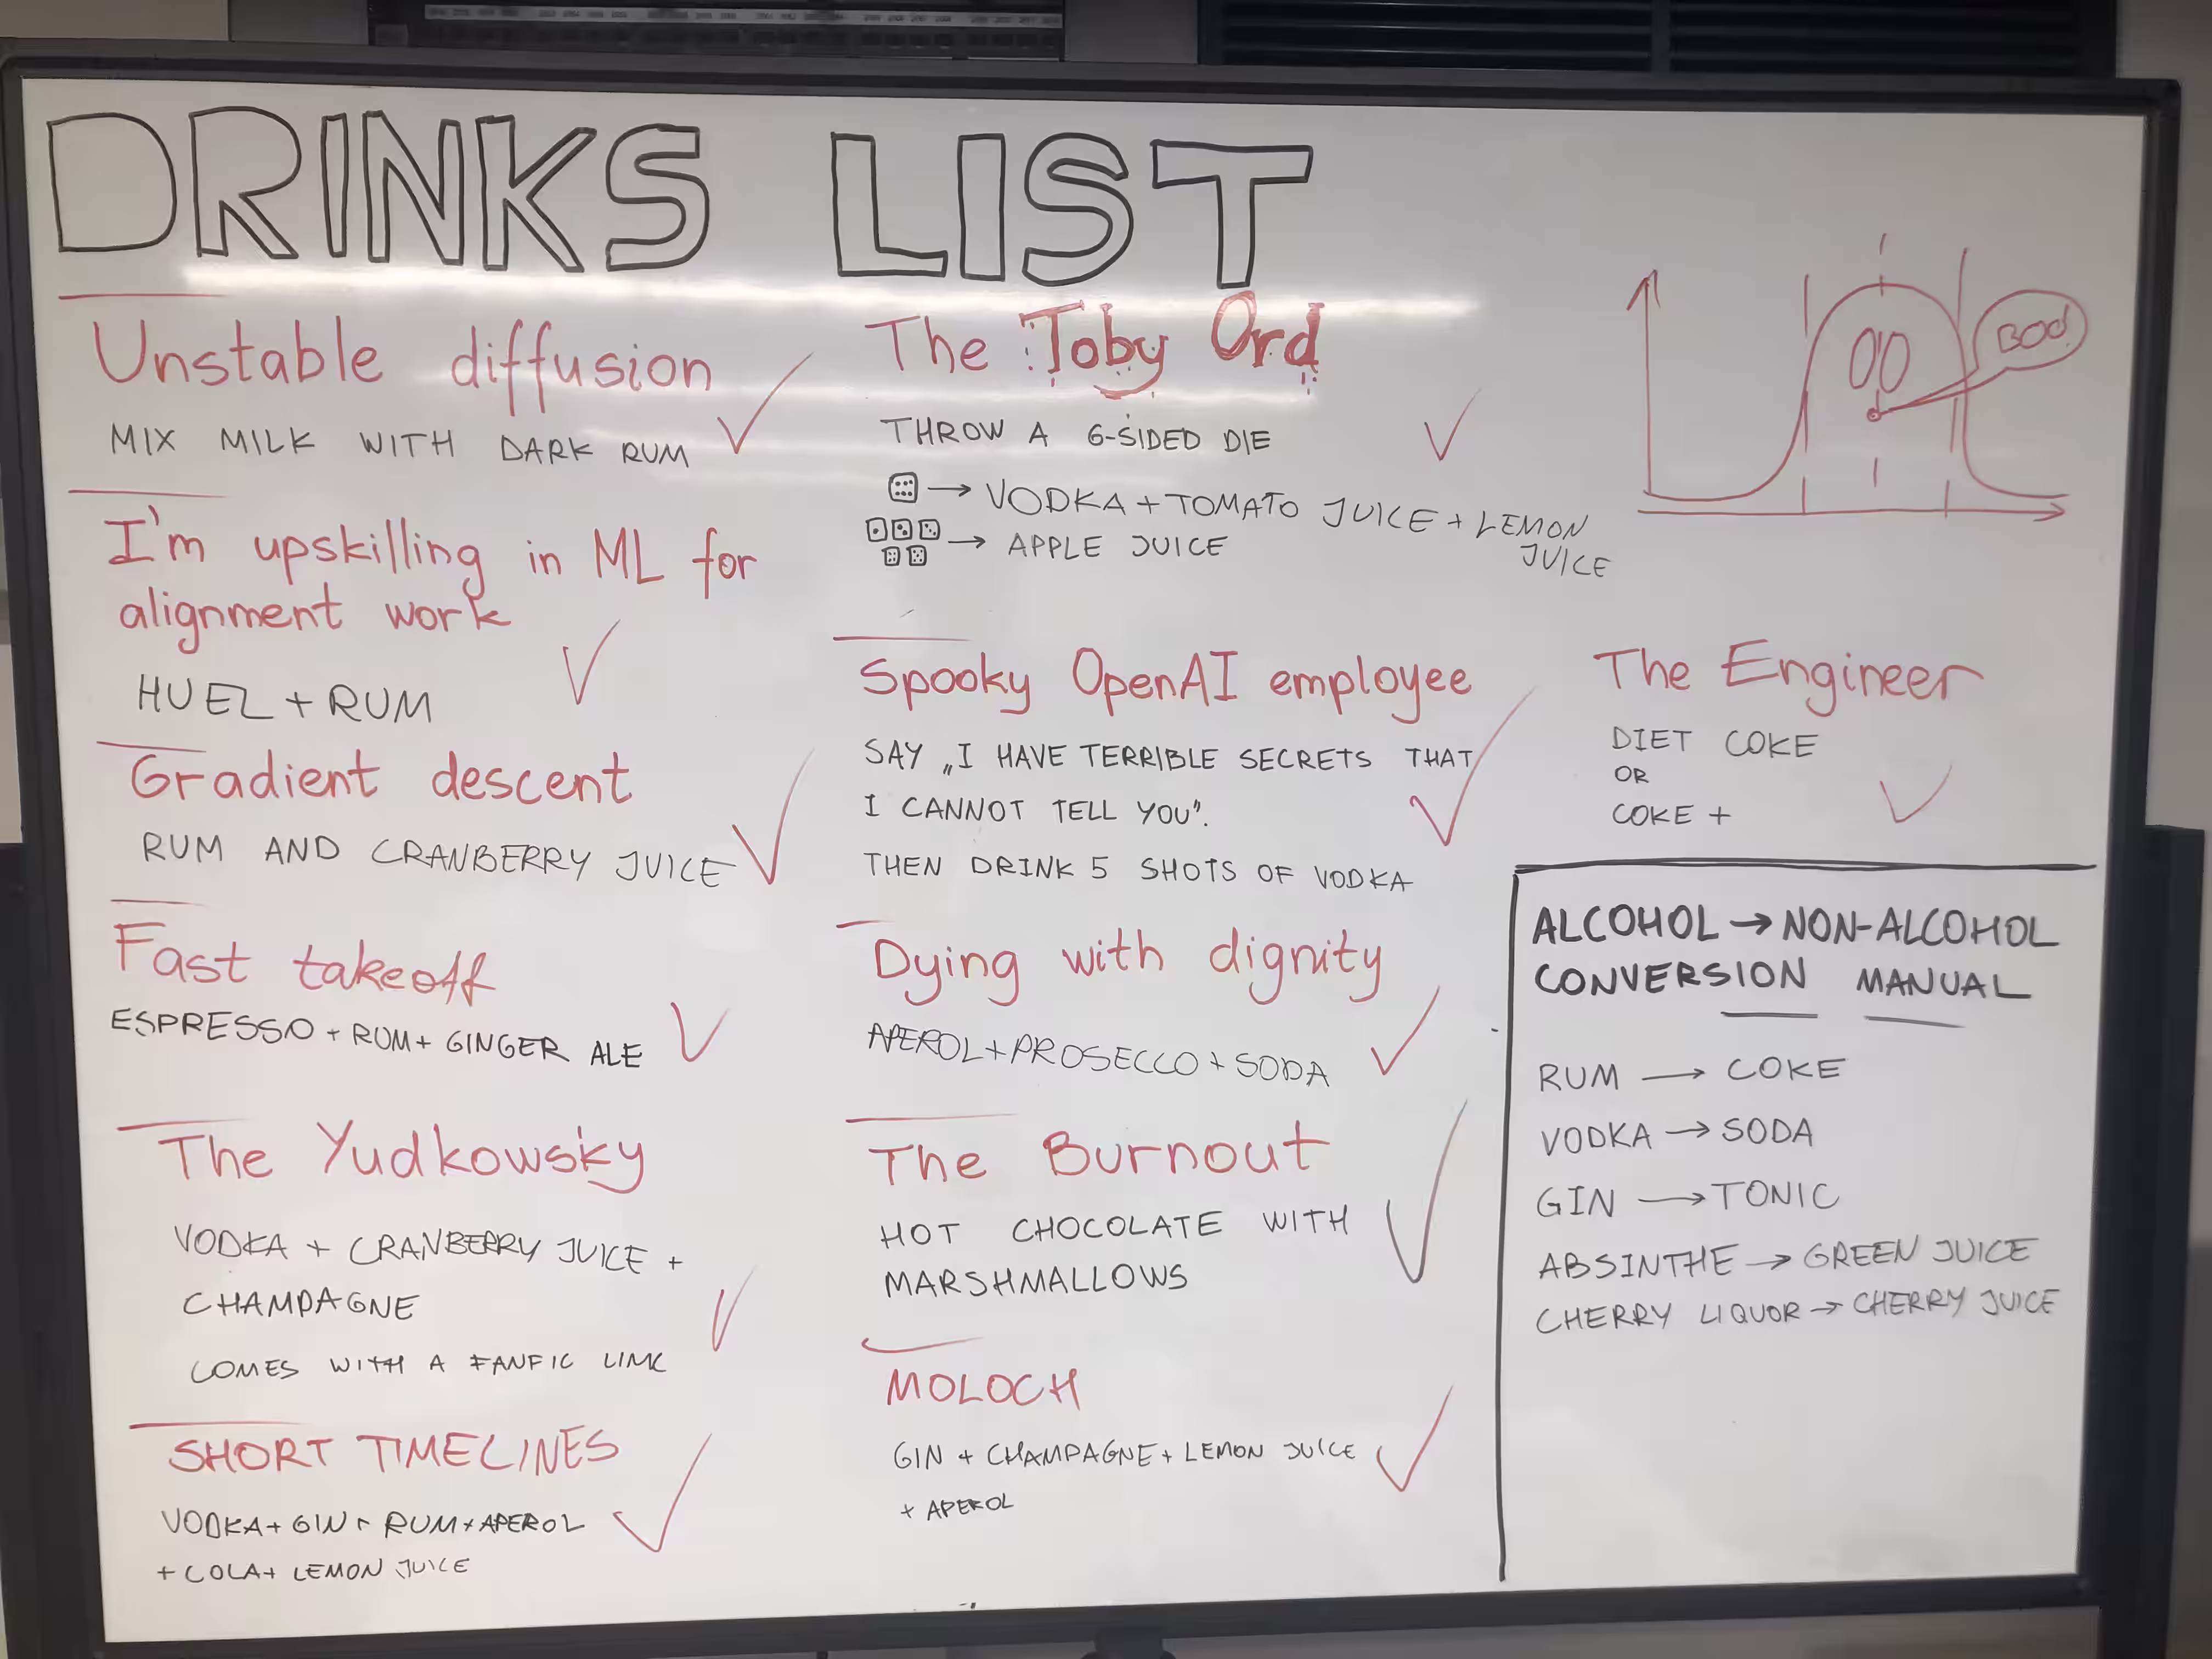 DRINKS LIST
Unstable diffusion
MIX MILK WITH DARK RUM
I'm upskilling in ML for
alignment work
HUEL + RUM
Gradient descent
RUM AND CRANBERRY JUICE
Fast takeoff
ESPRESSO + RUM + GINGER ALE
The Yudkowsky
VODKA + CRANBERRY JUICE +
CHAMPAGNE
COMES WITH A FANFIC LINK
SHORT TIMELINES
VODKA + GIN + RUM + APEROL
+ COLA + LEMON JUICE
The Toby Ord
THROW A 6-SIDED DIE
→ VODKA + TOMATO JUICE + LEMON
JUICE
→ APPLE JUICE
Spooky OpenAI employee
SAY „I HAVE TERRIBLE SECRETS THAT
I CANNOT TELL YOU".
THEN DRINK 5 SHOTS OF VODKA
Dying with dignity
APEROL + PROSECCO + SODA
The Burnout
HOT CHOCOLATE WITH
MARSHMALLOWS
MOLOCH
GIN + CHAMPAGNE + LEMON JUICE
+ APEROL
BOO!
The Engineer
DIET COKE
OR
COKE +
ALCOHOL → NON-ALCOHOL
CONVERSION MANUAL
RUM → COKE
VODKA → SODA
GIN → TONIC
ABSINTHE → GREEN JUICE
CHERRY LIQUOR → CHERRY JUICE